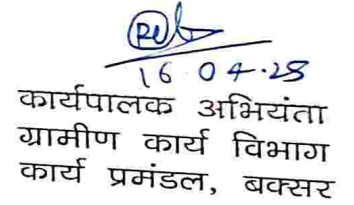 16.04.25
कार्यपालक अभियंता
ग्रामीण कार्य विभाग
कार्य प्रमंडल, बक्सर